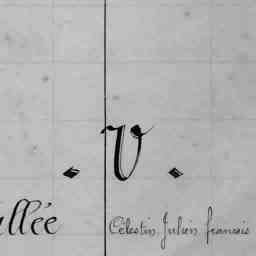 . V .
llée Célestin Julien francois